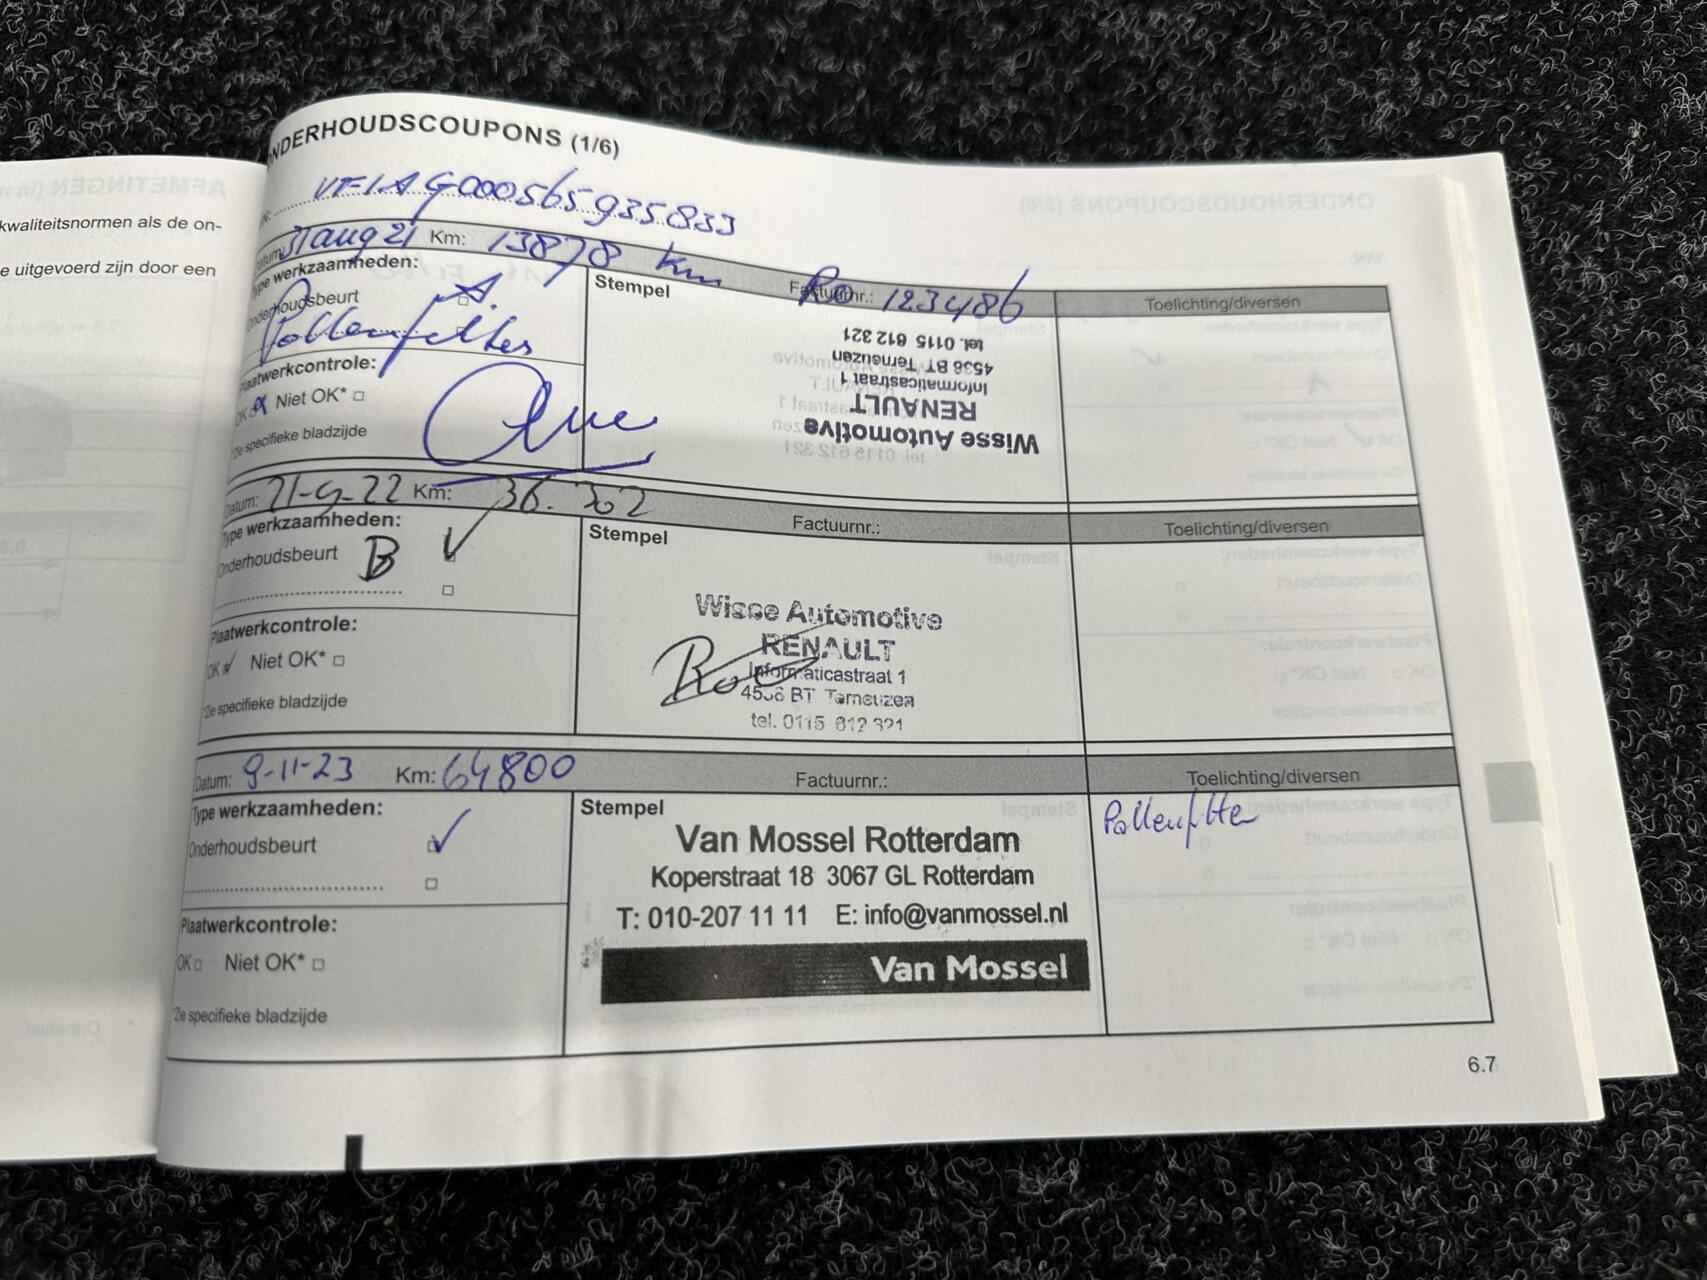 kwaliteitsnormen als de on-
e uitgevoerd zijn door een
NDERHOUDSCOUPONS (1/6)
VF1AG000565935833
Datum: 31 aug 21 Km: 13878 km Factuurnr.: Ro 123486 Toelichting/diversen
Type werkzaamheden:
Onderhoudsbeurt A.
Pollenfilter
Plaatwerkcontrole:
OK Niet OK*
*Zie specifieke bladzijde
Stempel
Wisse Automotive
RENAULT
Informaticastraat 1
4536 BT Terneuzen
tel. 0115 612 321
Datum: 21-9-22 Km: 36.302 Factuurnr.: Toelichting/diversen
Type werkzaamheden:
Onderhoudsbeurt B
Plaatwerkcontrole:
OK Niet OK*
*Zie specifieke bladzijde
Stempel
Wisse Automotive
RENAULT
Informaticastraat 1
4536 BT Terneuzen
tel. 0115 612 321
Datum: 9-11-23 Km: 64800 Factuurnr.: Toelichting/diversen
Type werkzaamheden:
Onderhoudsbeurt
Plaatwerkcontrole:
OK Niet OK*
*Zie specifieke bladzijde
Stempel
Van Mossel Rotterdam
Koperstraat 18 3067 GL Rotterdam
T: 010-207 11 11 E: info@vanmossel.nl
Van Mossel
Pollenfilter
6.7